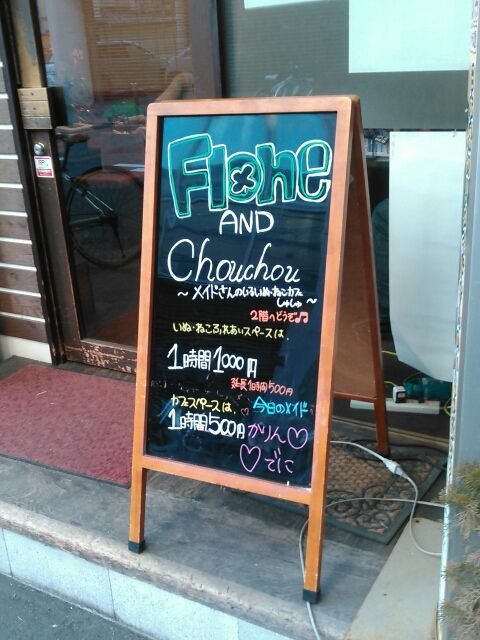 Flone
AND
Chouchou
～メイドさんのいるいぬ・ねこカフェ
しゅしゅ～
2階へどうぞ♫
いぬ・ねこふれあいスペースは、
1時間1000円
延長1時間500円
カフェスペースは、♡今日のメイド
1時間500円 かりん♡
♡でに